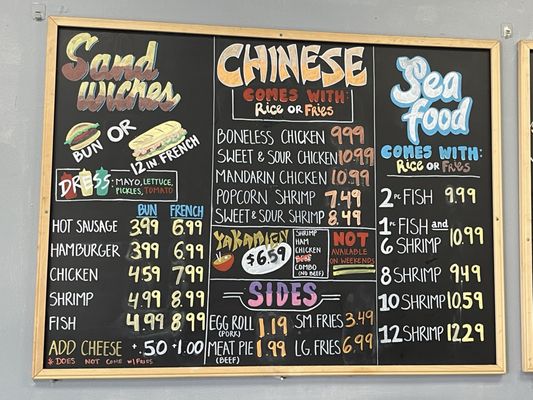 Sandwiches
BUN OR
12 IN FRENCH
DRESS: MAYO, LETTUCE, PICKLES, TOMATO
BUN FRENCH
HOT SAUSAGE 3.99 6.99
HAMBURGER 3.99 6.99
CHICKEN 4.59 7.99
SHRIMP 4.99 8.99
FISH 4.99 8.99
ADD CHEESE +.50 +1.00
* DOES NOT COME W/FRIES
CHINESE
COMES WITH:
Rice OR Fries
BONELESS CHICKEN 9.99
SWEET & SOUR CHICKEN 10.99
MANDARIN CHICKEN 10.99
POPCORN SHRIMP 7.49
SWEET & SOUR SHRIMP 8.49
YAKAMIEN
$6.59
SHRIMP
HAM
CHICKEN
COMBO
(NO BEEF)
NOT
AVAILABLE
ON WEEKENDS
SIDES
EGG ROLL 1.19 SM FRIES 3.49
(PORK)
MEAT PIE 1.99 LG. FRIES 6.99
(BEEF)
Sea
food
COMES WITH:
Rice OR Fries
2 PC FISH 9.99
1 PC FISH and
6 SHRIMP 10.99
8 SHRIMP 9.49
10 SHRIMP 10.59
12 SHRIMP 12.29